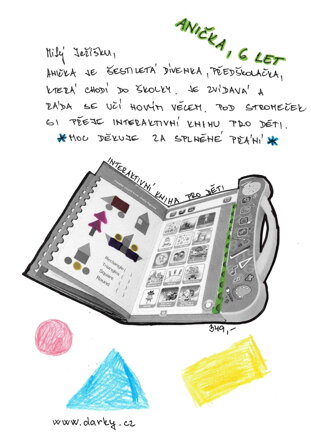 ANIČKA, 6 LET
Milý Ježíšku,
ANIČKA JE ŠESTILETÁ DÍVENKA, PŘEDŠKOLAČKA,
KTERÁ CHODÍ DO ŠKOLKY. JE ZVÍDAVÁ A
RÁDA SE UČÍ NOVÝM VĚCEM. POD STROMEČEK
SI PŘEJE INTERAKTIVNÍ KNIHU PRO DĚTI.
*MOC DĚKUJE ZA SPLNĚNÉ PŘÁNÍ*
INTERAKTIVNÍ KNIHA PRO DĚTI
Rectangles
Triangles
Square
Round
349,-
www.darky.cz